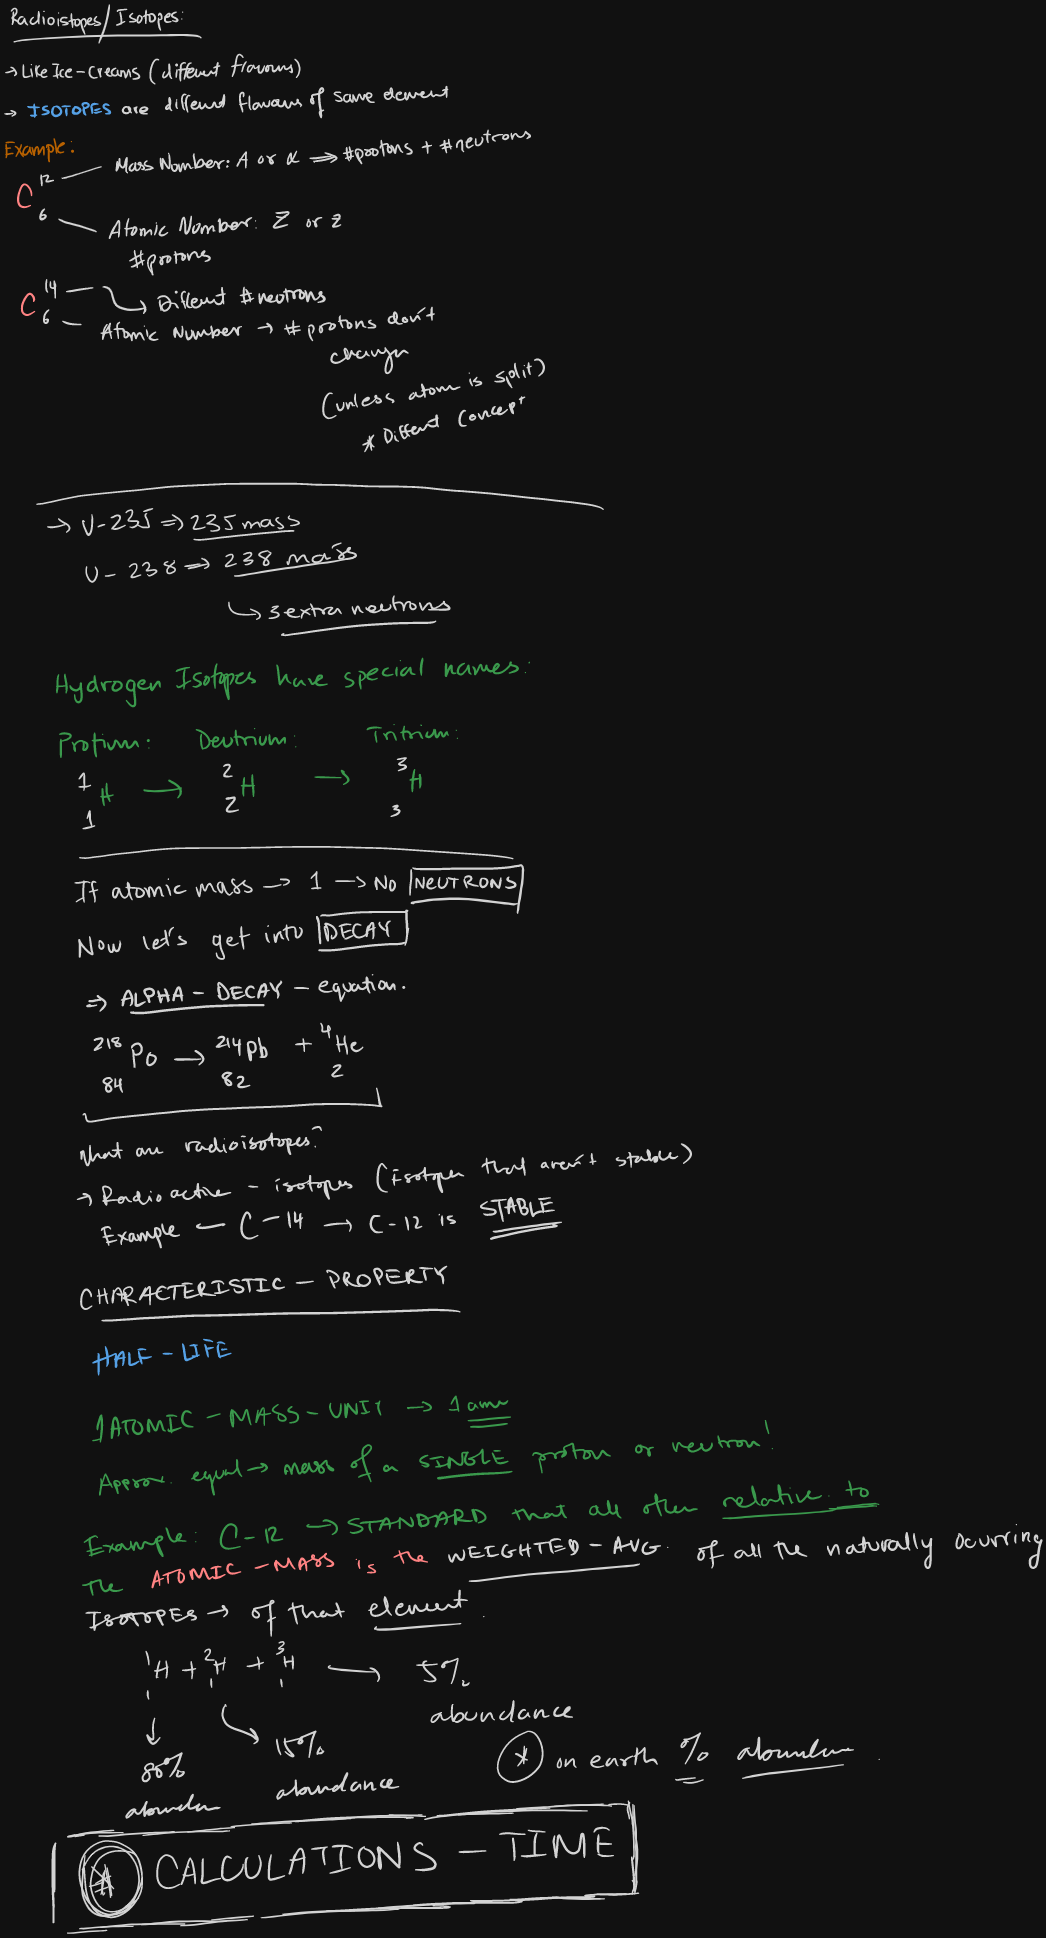 Radioistopes/Isotopes:
→ Like Ice-Creams (different flavours)
→ ISOTOPES are different flavours of same element
Example:
C 12 6 — Mass Number: A or α ⇒ #protons + #neutrons
Atomic Number: Z or z
#protons
C 14 6 → Different #neutrons
Atomic Number → # protons don't
change
(unless atom is split)
* Different Concept
→ U-235 ⇒ 235 mass
U-238 ⇒ 238 mass
↳ 3 extra neutrons
Hydrogen Isotopes have special names:
Protium: Deutrium: Tritrium:
1 1 H → 2 2 H → 3 3 H
If atomic mass → 1 → No NEUTRONS
Now let's get into DECAY
⇒ ALPHA-DECAY - equation.
218 84 Po → 214 82 Pb + 4 2 He
What are radioisotopes?
→ Radioactive - isotopes (isotopes that aren't stable)
Example — C-14 → C-12 is STABLE
CHARACTERISTIC - PROPERTY
HALF-LIFE
1 ATOMIC-MASS-UNIT → 1 amu
Approx. equal → mass of a SINGLE proton or neutron!
Example: C-12 → STANDARD that all other relative to
The ATOMIC-MASS is the WEIGHTED-AVG. of all the naturally ocurring
ISOTOPES → of that element.
1 1 H + 2 1 H + 3 1 H → 5%
abundance
80% 15%
abundance
* on earth %
* CALCULATIONS - TIME